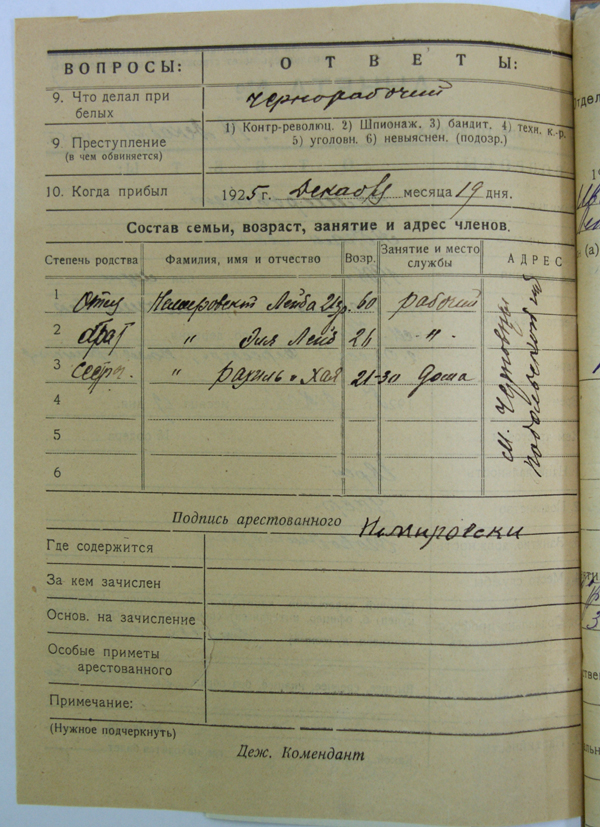 ВОПРОСЫ: ОТВЕТЫ:
9. Что делал при белых чернорабочий
9 Преступление (в чем обвиняется) 1) Контр-революц. 2) Шпионаж. 3) бандит. 4) техн. к.-р.
5) уголовн. 6) невыяснен. (подозр.)
10. Когда прибыл 1925 г. Декабр месяца 19 дня.
Состав семьи, возраст, занятие и адрес членов.
Степень родства Фамилия, имя и отчество Возр. Занятие и место службы АДРЕС
1 Отец Лейба 60 рабочий
2 брат " Эля Лейб 26 "
3 сестр. " Рахиль и Хая 21-30 дома
4
5
6
м.
Подпись арестованного Немировски
Где содержится
За кем зачислен
Основ. на зачисление
Особые приметы
арестованного
Примечание:
(Нужное подчеркнуть)
Деж. Комендант